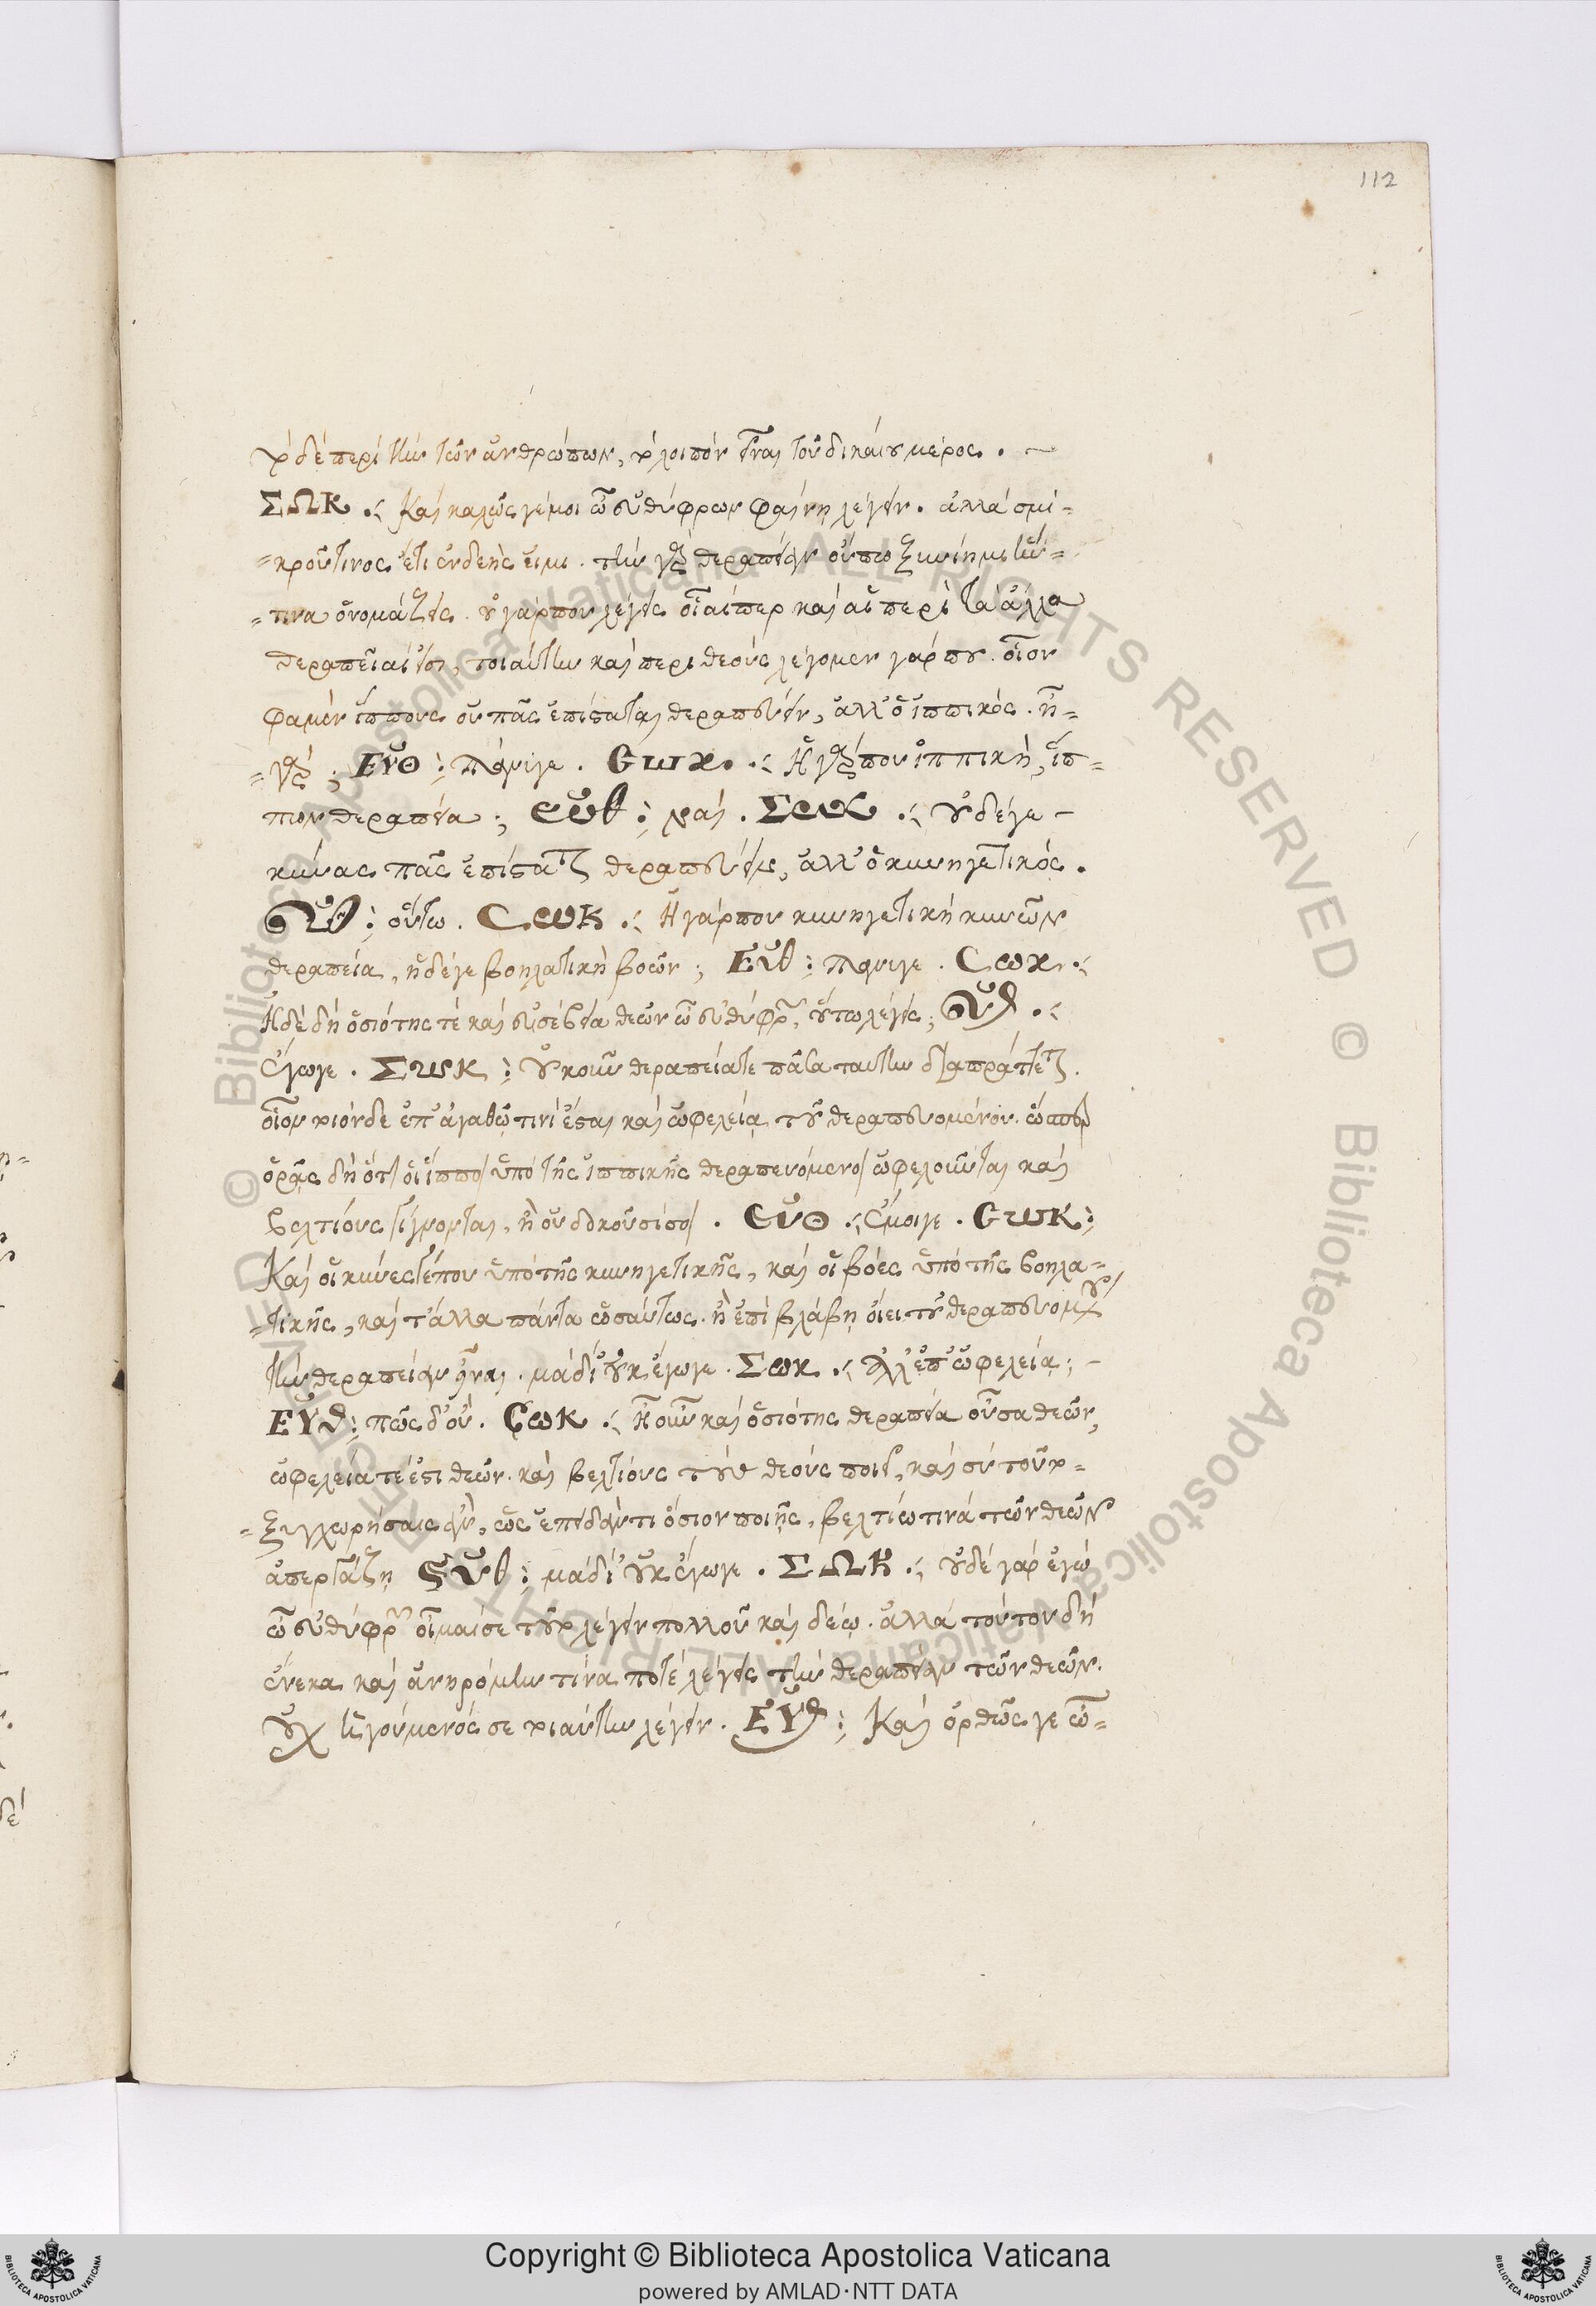 112
τὸ δὲ περὶ τὴν τῶν ἀνθρώπων, τὸ λοιπὸν εἶναι τοῦ δικαίου μέρος . ~
ΣΩΚ .⁖ Καὶ καλῶς γέ μοι ὦ εὐθύφρων φαίνῃ λέγειν . ἀλλὰ σμι-
-κροῦ τινος ἔτι ἐνδεής εἰμι . τὴν γὰρ θεραπείαν οὔπω ξυνίημι ἥν-
-τινα ὀνομάζεις . οὐ γάρ που λέγεις οἷαί περ καὶ αἱ περὶ τὰ ἄλλα
θεραπεῖαί εἰσι, τοιαύτην καὶ περὶ θεούς λέγομεν γάρ που . οἷον
φαμὲν ἵππους οὐ πᾶς ἐπίσταται θεραπεύειν, ἀλλ' ὁ ἱππικός . ἦ-
-γάρ ; ΕΥΘ : πάνυ γε . Cωκ . ⁖ Ἡ γάρ που ἱππικὴ, ἵπ-
πων θεραπεία ; ευθ : ναί . Σωκ .⁖ οὐδέ γε -
κύνας πᾶς ἐπίσταται θεραπεύειν, ἀλλ' ὁ κυνηγετικός .
Ευθ : οὕτω . Cωκ .⁖ Ἡ γάρ που κυνηγετικὴ κυνῶν
θεραπεία, ἡ δέ γε βοηλατικὴ βοῶν ; Ευθ : πάνυ γε . Cωκ .⁖
Ἡ δὲ δὴ ὁσιότης τὲ καὶ εὐσέβεια θεῶν ὦ εὐθύφρον, οὕτω λέγεις ; Ευθ .⁖
Ἔγωγε . Σωκ : οὐκοῦν θεραπεία τε πᾶσα ταυτὸν διαπράττεται .
οἷον τοιόνδε ἐπ' ἀγαθῷ τινί ἐστι καὶ ὠφελείᾳ τοῦ θεραπευομένου . ὥσπερ
ὁρᾷς δὴ ὅτι οἱ ἵπποι ὑπὸ τῆς ἱππικῆς θεραπευόμενοι ὠφελοῦνται καὶ
βελτίους γίγνονται, ἢ οὐ δοκοῦσί σοι . Ευθ .⁖ Ἔμοιγε . Cωκ :
Καὶ οἱ κύνες γέ που ὑπὸ τῆς κυνηγετικῆς, καὶ οἱ βόες ὑπὸ τῆς βοηλα-
-τικῆς, καὶ τἄλλα πάντα ὡσαύτως . ἢ ἐπὶ βλάβῃ οἴει τοῦ θεραπευομένου
τὴν θεραπείαν εἶναι . μὰ δί' οὐκ ἔγωγε . Σωκ .⁖ Ἀλλ' ἐπ' ὠφελείᾳ ; -
ΕΥΘ : πῶς δ' οὔ . Cωκ .⁖ Ἦ οὖν καὶ ὁσιότης θεραπεία οὖσα θεῶν,
ὠφελεία τέ ἐστι θεῶν . καὶ βελτίους τοὺς θεοὺς ποιεῖ, καὶ σὺ τοῦτο-
-ξυγχωρήσαις ἂν, ὡς ἐπειδάν τι ὅσιον ποιῇς, βελτίω τινὰ τῶν θεῶν
ἀπεργάζῃ Ευθ : μὰ δί' οὐκ ἔγωγε . ΣΩΚ .⁖ οὐδὲ γὰρ ἐγὼ
ὦ εὐθύφρον οἶμαί σε τοῦτο λέγειν πολλοῦ καὶ δέω . ἀλλὰ τούτου δὴ
ἕνεκα καὶ ἀνηρόμην τίνα ποτὲ λέγεις τὴν θεραπείαν τῶν θεῶν .
οὐχ ἡγούμενός σε τοιαύτην λέγειν . ΕΥΘ : Καὶ ὀρθῶς γε ὦ-
Copyright © Biblioteca Apostolica Vaticana
powered by AMLAD·NTT DATA